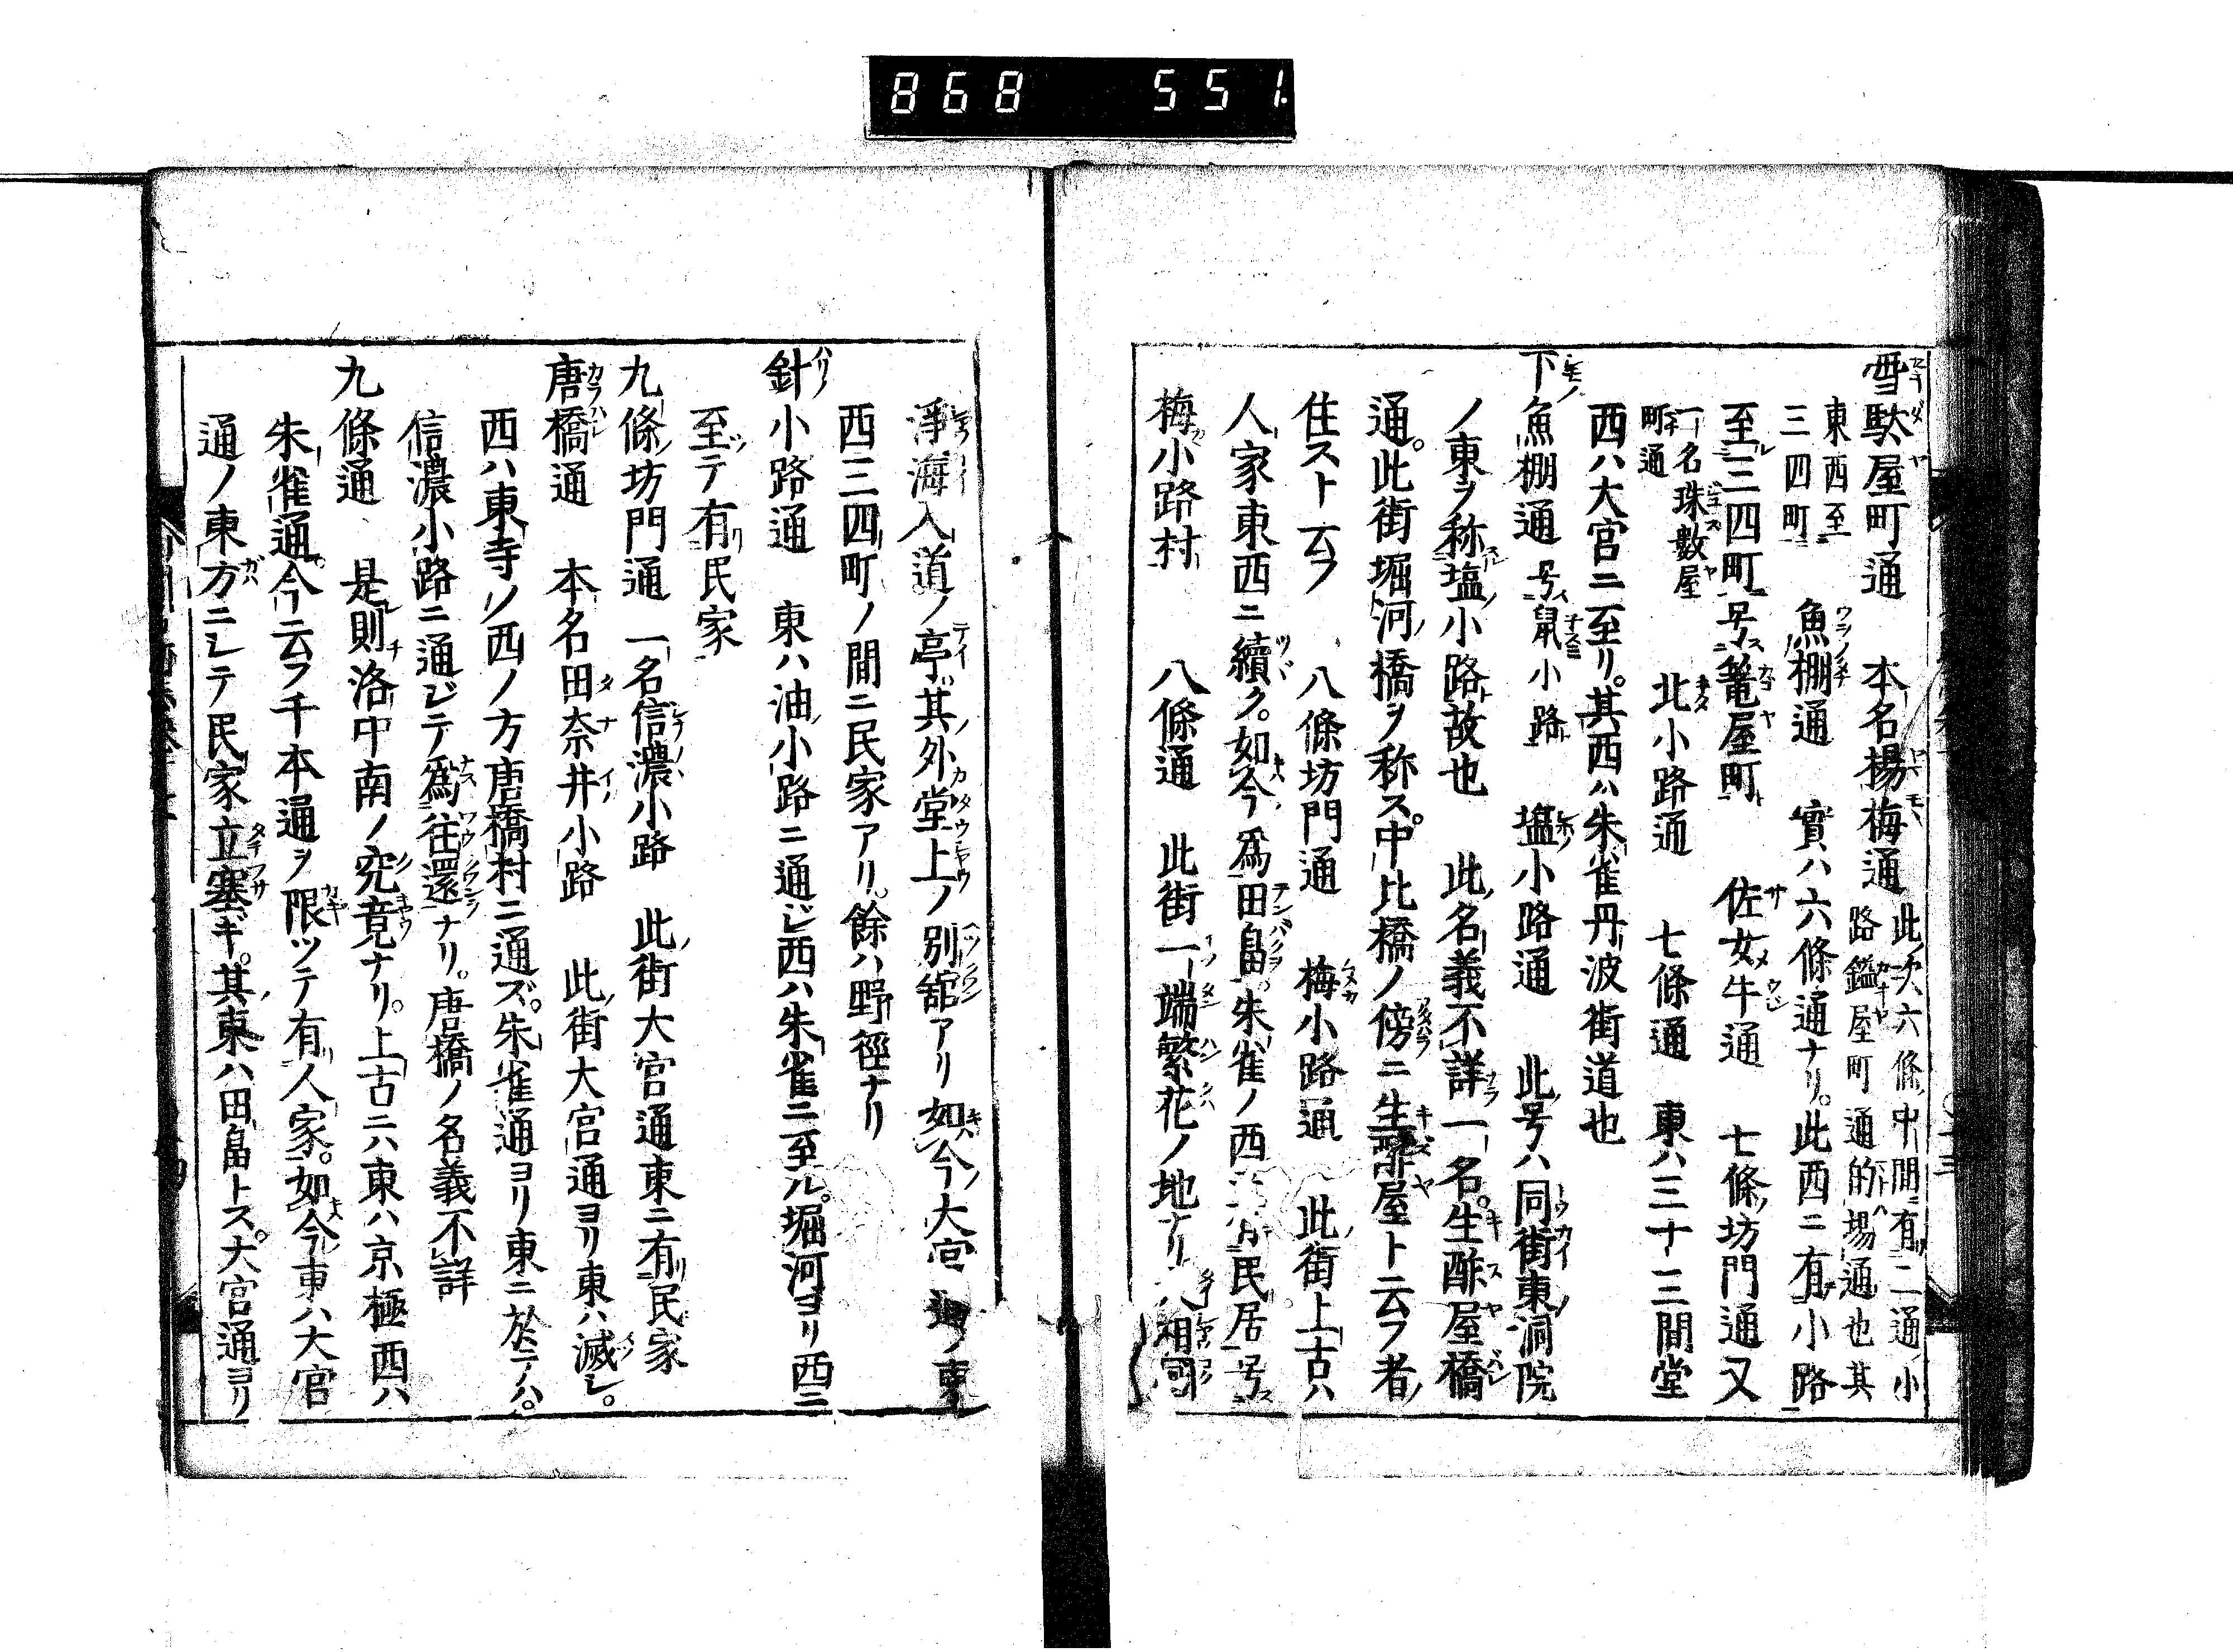 868 551
雪駄屋町通 本名楊梅通 此次六條中間有二通小
路鎰屋町通的場通也其
東西至
三四町 魚棚通 實ハ六條通ナリ。此西ニ有小路
至三四町号篭屋町 佐女牛通 七條坊門通又
一名珠數屋
町通 北小路通 七條通 東ハ三十三間堂
西ハ大宮ニ至リ。其西ハ朱雀丹波街道也
下魚棚通 号鼠小路 塩小路通 此号ハ同街東洞院
ノ東ヲ称塩小路故也 此名義不詳一名。生酢屋橋
通。此街堀河橋ヲ称ス。中比橋ノ傍ニ生酢屋ト云フ者
住スト云フ 八條坊門通 梅小路通 此街上古ハ
人家東西ニ續ク。如今為田畠。朱雀ノ西 民居号
梅小路村 八條通 此街一端繁花ノ地ナリ 相國
淨海入道ノ亭其外堂上ノ別舘アリ如今大宮通ノ東
西三四町ノ間ニ民家アリ。餘ハ野徑ナリ
針小路通 東ハ油小路ニ通ジ西ハ朱雀ニ至ル。堀河ヨリ西ニ
至テ有民家
九條坊門通 一名信濃小路 此街大宮通東ニ有民家
唐橋通 本名田奈井小路 此街大宮通ヨリ東ハ滅シ。
西ハ東寺ノ西ノ方唐橋村ニ通ズ。朱雀通ヨリ東ニ於テハ。
信濃小路ニ通ジテ為往還ナリ。唐橋ノ名義不詳
九條通 是則洛中南ノ究竟ナリ。上古ニハ東ハ京極西ハ
朱雀通。今云フ千本通ヲ限ツテ有人家。如今東ハ大宮
通ノ東方ニシテ民家立塞ギ。其東ハ田畠トス。大宮通ヨリ